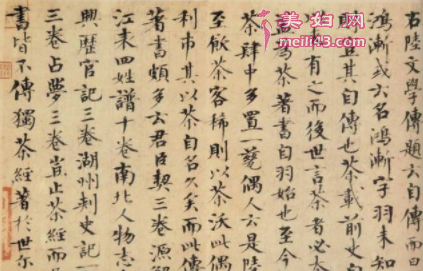 右陸文學傳題云自傳而曰
鴻漸或云名鴻漸字羽未知
豈其自傳也茶載前史
以來有之而後世言茶者必
盖為茶著書自羽始也至今
茶肆中多置一甆偶人云是陸
至飲茶客稀則以茶沃此偶
利市其以茶自名久矣而此傳
著書頗多云君臣契三卷源解
江表四姓譜十卷南北人物志
興歷官記三卷湖州刺史記一
三卷占夢三卷豈止茶經而
書皆不傳獨茶經著於世尔
美妇网